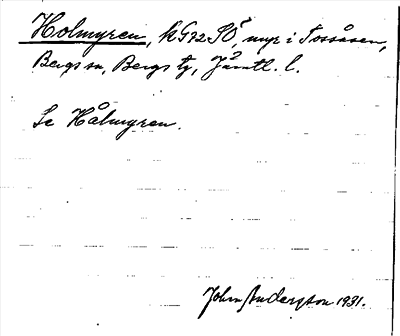 Holmyren, k G92 SÖ, myr i Tossåsen,
Bergs sn, Bergs tg, Jämtl. l.
Se Hålmyren.
John Anderzson 1931.